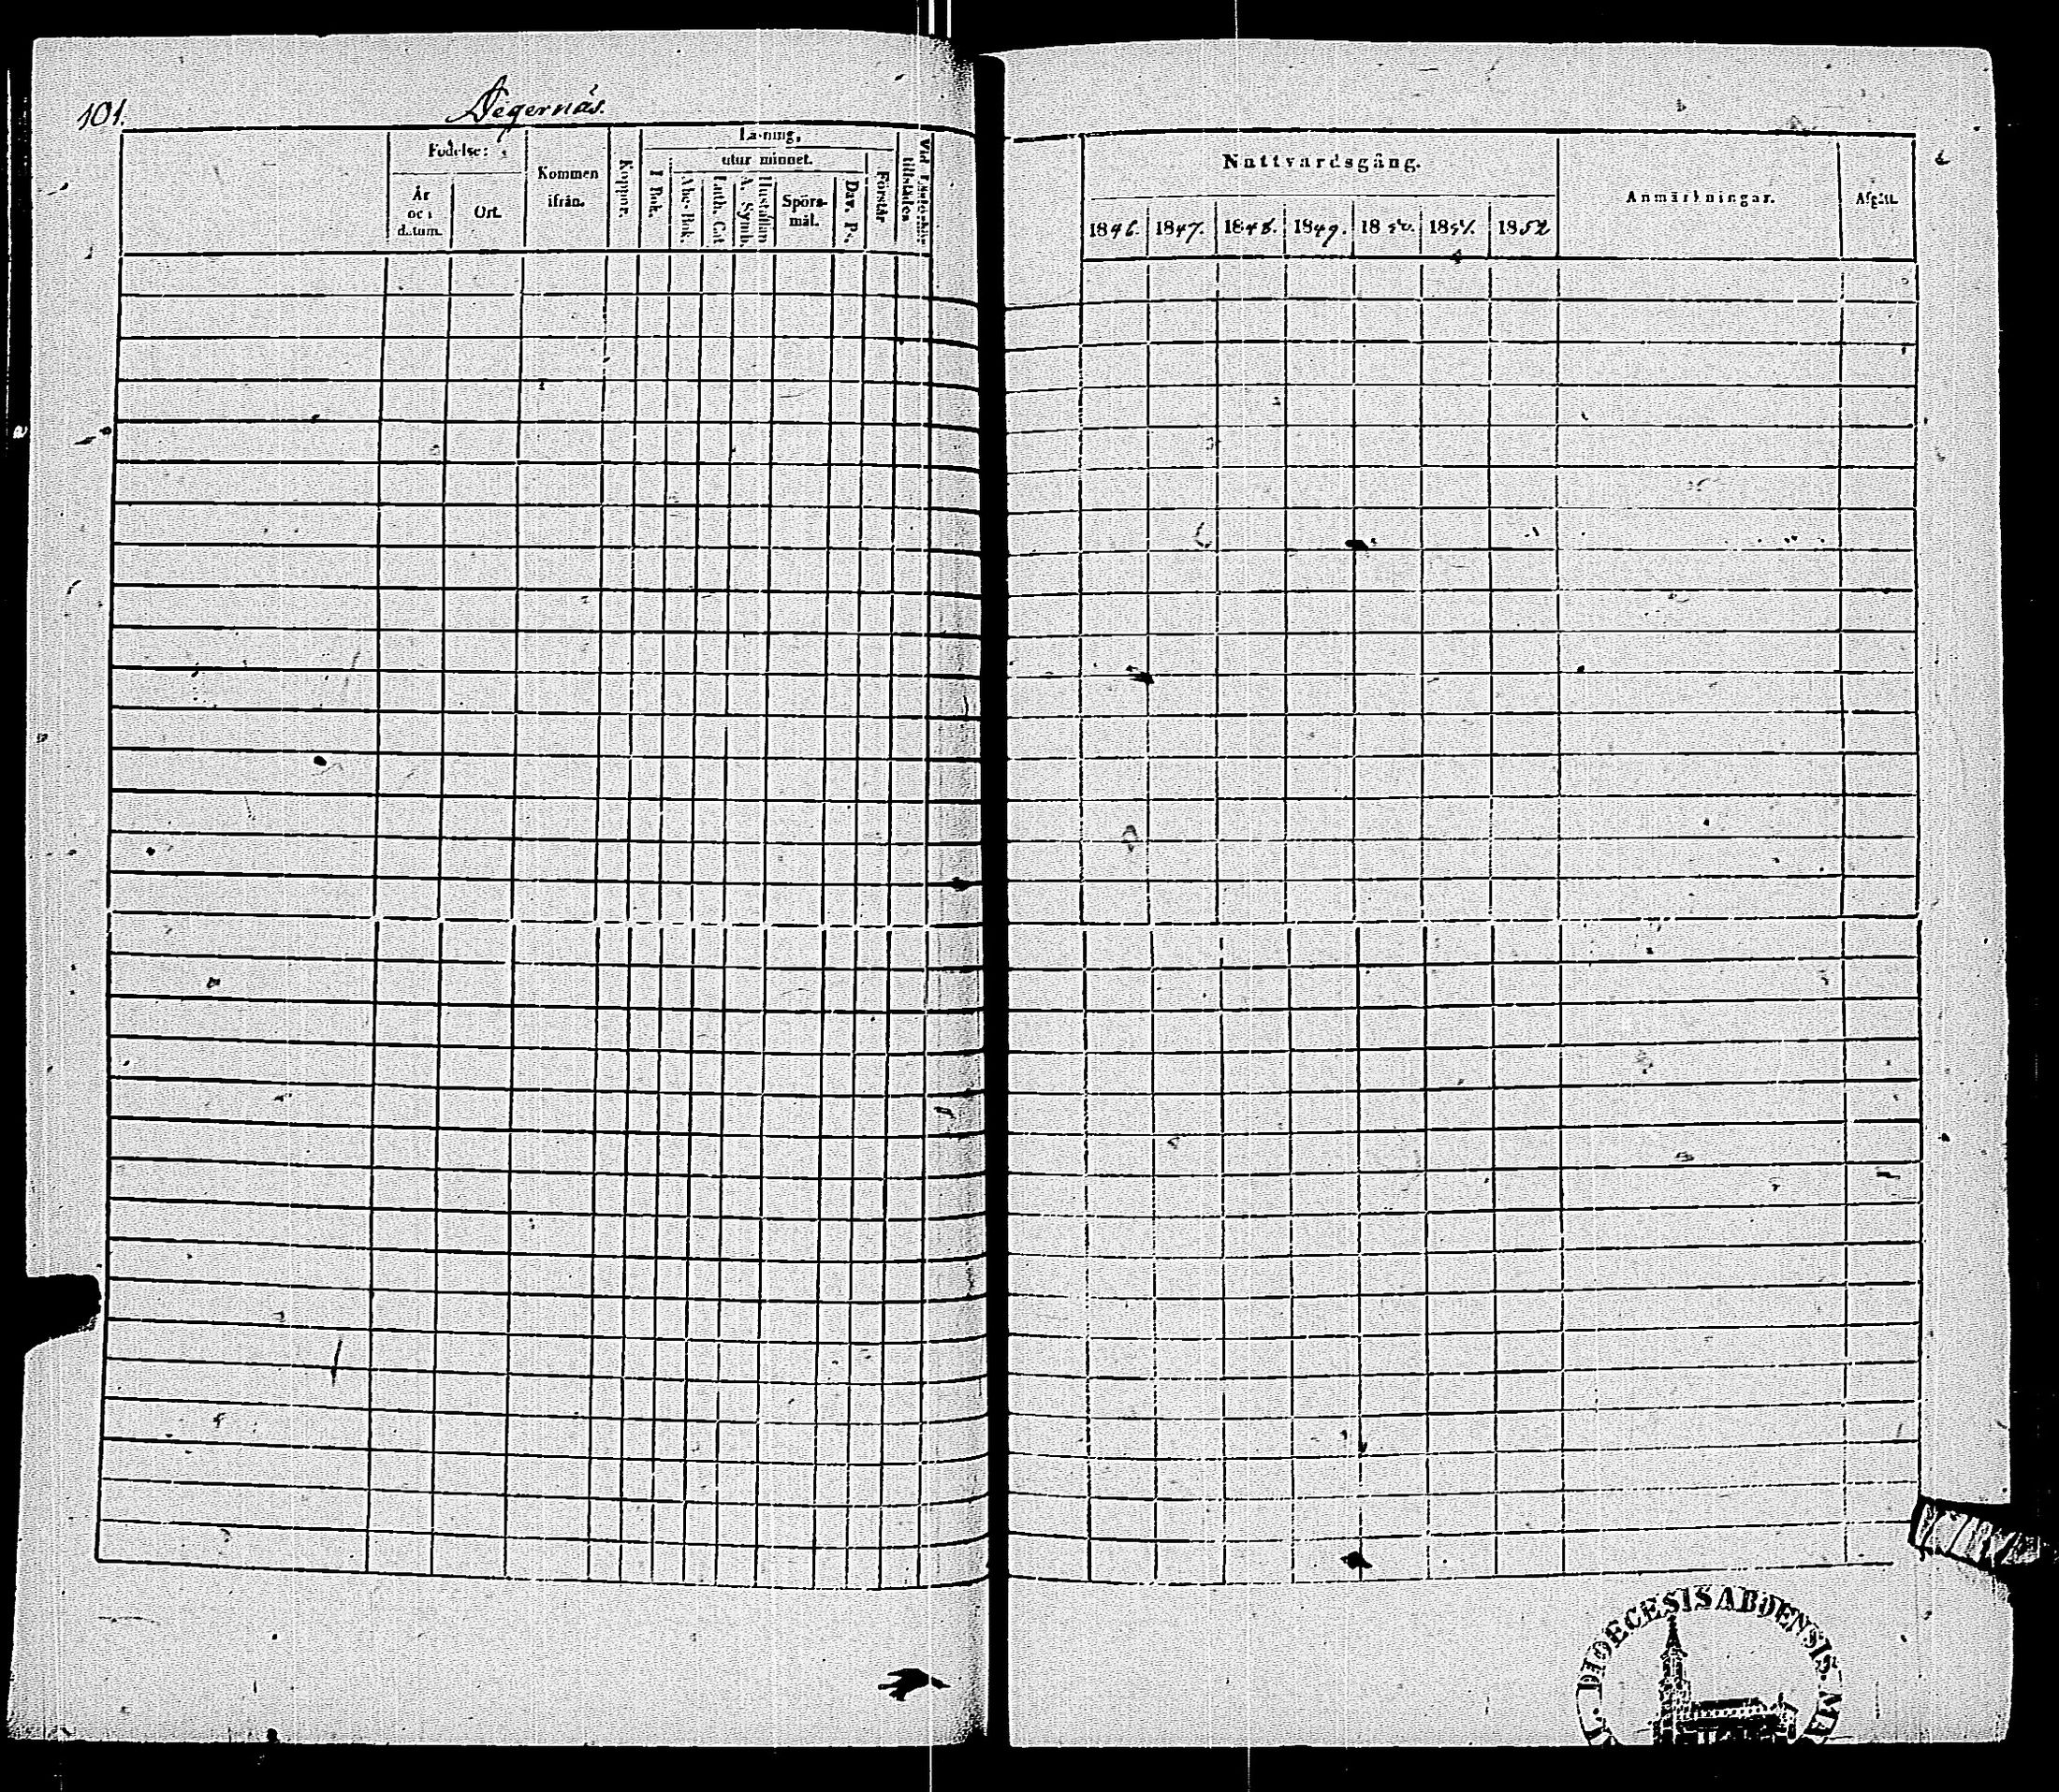 101.
Degernäs.
Födelse:
År och datum.
Ort.
Kommen ifrån.
Koppor.
Läsning,
utur minnet.
I Bok.
Abc-Bok.
Luth. Cat
A. Symb.
Hustaflan
Spörs-mål.
Dav. Ps.
Förstår
tillstädes
Nattvardsgång.
1846. 1847. 1848. 1849. 1850. 1851. 1852
Anmärkningar.
Afgått.
DIOECESIS ABOENSIS. MA